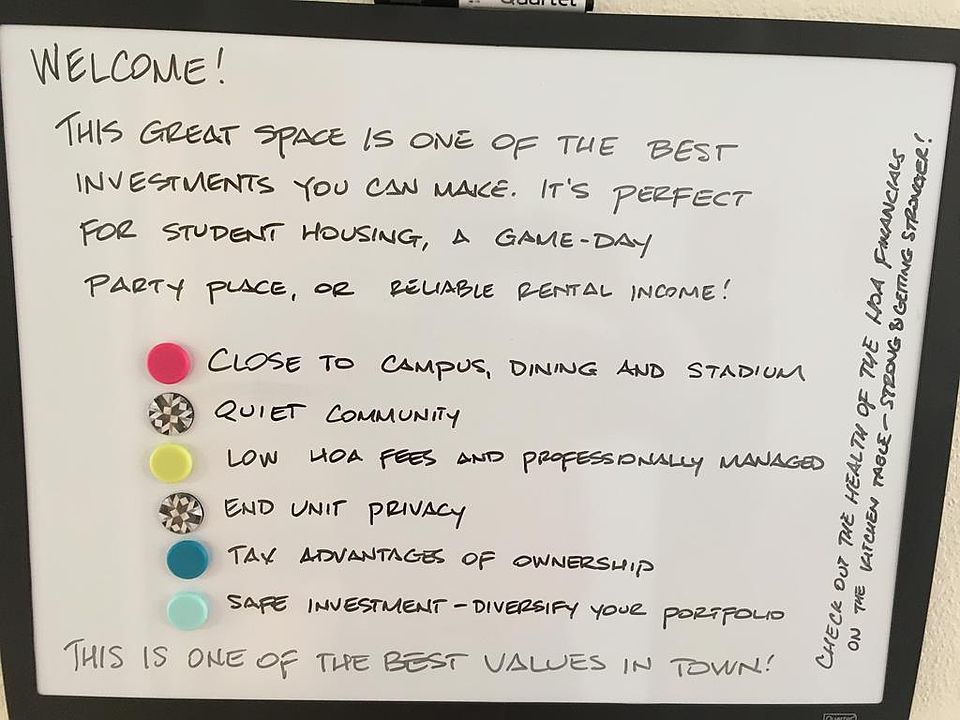 Quartet
WELCOME!
THIS GREAT SPACE IS ONE OF THE BEST
INVESTMENTS YOU CAN MAKE. IT'S PERFECT
FOR STUDENT HOUSING, A GAME-DAY
PARTY PLACE, OR RELIABLE RENTAL INCOME!
CLOSE TO CAMPUS, DINING AND STADIUM
QUIET COMMUNITY
LOW HOA FEES AND PROFESSIONALLY MANAGED
END UNIT PRIVACY
TAX ADVANTAGES OF OWNERSHIP
SAFE INVESTMENT - DIVERSIFY YOUR PORTFOLIO
THIS IS ONE OF THE BEST VALUES IN TOWN!
CHECK OUT THE HEALTH OF THE HOA FINANCIALS
ON THE KITCHEN TABLE - STRONG & GETTING STRONGER!
Quartet